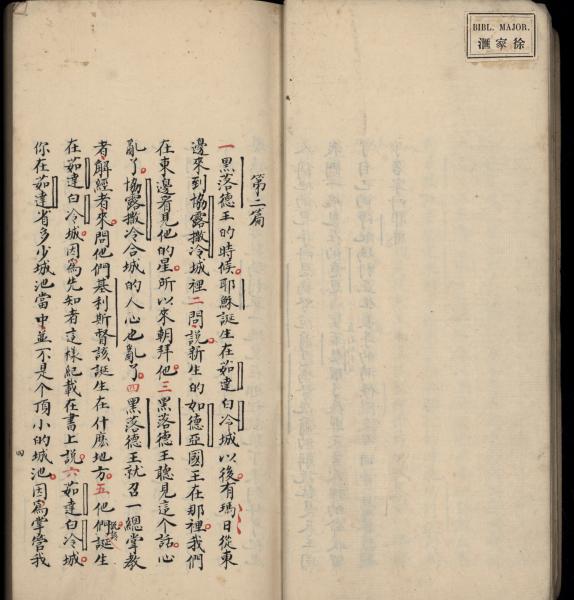 BIBL. MAJOR.
徐家滙
第二篇
一黑落德王的時候。耶穌誕生在茹達白冷城以後有瑪日從東
邊來到協露撒冷城裡二問說新生的如德亞國王在那裡。我們
在東邊看見他的星。所以來朝拜他。三黑落德王聽見這个話心
亂了。協露撒冷合城的人心也亂了。四黑落德王就召一總掌教
者。解經者來。問他們基利斯督該誕生在什麽地方。五他們說該誕生
在茹達白冷城。因爲先知者這樣紀載在書上說。六茹達白冷城
你在茹達省多少城池當中並不是个頂小的城池。因爲掌管我
四